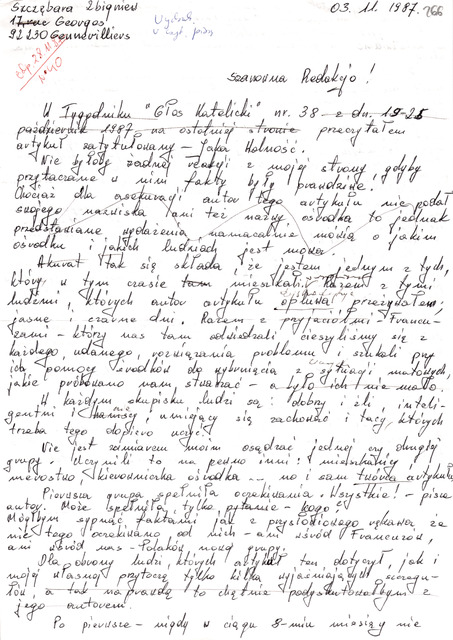 Szczębara Zbigniew
03. 11. 1987.
266
17, rue Georges
92230 Gennevilliers
Szanowna Redakcjo!
W Tygodniku "Głos Katolicki" nr. 38 - z dn. 19-25
październik 1987 na ostatniej stronie przeczytałem
artykuł zatytułowany - Jaka Wolność.
Nie byłoby żadnej reakcji z mojej strony, gdyby
przytaczane w nim fakty były prawdziwe.
Chociaż dla asekuracji autor tego artykułu nie podał
swojego nazwiska, ani też nazwy ośrodka to jednak
przedstawiane wydarzenia namacalnie mówią o jakim
ośrodku i jakich ludziach jest mowa.
Akurat tak się składa że jestem jednym z tych,
który w tym czasie tam mieszkali. Razem z tymi
ludźmi, których autor artykułu opluwa przeżyłem
jasne i czarne dni. Razem z przyjaciółmi - Francu-
zami - którzy nas tam odwiedzali cieszyliśmy się z
każdego, udanego, rozwiązania problemu i szukali przy
ich pomocy środków do wybrnięcia z sytuacji matowych,
jakie próbowano nam stwarzać - a było ich nie mało.
W każdym skupisku ludzi są: dobrzy i źli, inteli-
gentni i nie umiejący się zachować i tacy, których
trzeba tego dopiero uczyć.
Nie jest zamiarem moim osądzać jednej czy drugiej
grupy. Uczynili to na pewno inni: mieszkańcy,
merostwo, kierowniczka ośrodka ... no i sam twórca artykułu.
Pierwsza grupa spełniła oczekiwania. Wszystkie! - pisze
autor. Może spełniła, tylko pytanie - kogo?
Mógłbym sypnąć faktami jak z przysłowiowego rękawa, że
nie tego oczekiwano od nich - ani wśród Francuzów,
ani wśród nas - Polaków nową grupy.
Dla obrony ludzi, których artykuł ten dotyczył, jak i
mojej własnej przytoczę tylko kilka wyjaśniających szczegó-
łów, a tak na prawdę to chętnie podyskutowałbym z
jego autorem.
Po pierwsze - nigdy w ciągu 8-miu miesięcy nie